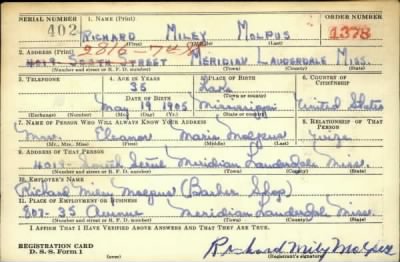 SERIAL NUMBER
1. NAME (Print)
ORDER NUMBER
402
RICHARD MILEY MOLPUS
1378
(First) (Middle) (Last)
2. ADDRESS (Print) 2816-7th St
4019- STREET MERIDIAN LAUDERDALE MISS.
(Number and street or R. F. D. number) (Town) (County) (State)
3. TELEPHONE
4. AGE IN YEARS
5. PLACE OF BIRTH
6. COUNTRY OF CITIZENSHIP
35
DATE OF BIRTH
(Town or county)
May 19, 1905
Mississippi
United States
(Exchange) (Number) (Mo.) (Day) (Yr.) (State or country)
7. NAME OF PERSON WHO WILL ALWAYS KNOW YOUR ADDRESS
8. RELATIONSHIP OF THAT PERSON
Mrs. Eleanor Marie Molpus
wife
(Mr., Mrs., Miss) (First) (Middle) (Last)
9. ADDRESS OF THAT PERSON
4019- Meridian Lauderdale Miss.
(Number and street or R. F. D. number) (Town) (County) (State)
10. EMPLOYER'S NAME
Richard Miley Molpus (Barber Shop)
11. PLACE OF EMPLOYMENT OR BUSINESS
807- 35 Avenue Meridian Lauderdale Miss.
(Number and street or R. F. D. number) (Town) (County) (State)
I AFFIRM THAT I HAVE VERIFIED ABOVE ANSWERS AND THAT THEY ARE TRUE.
REGISTRATION CARD
D. S. S. Form 1
Richard Miley Molpus
(Registrant's signature)